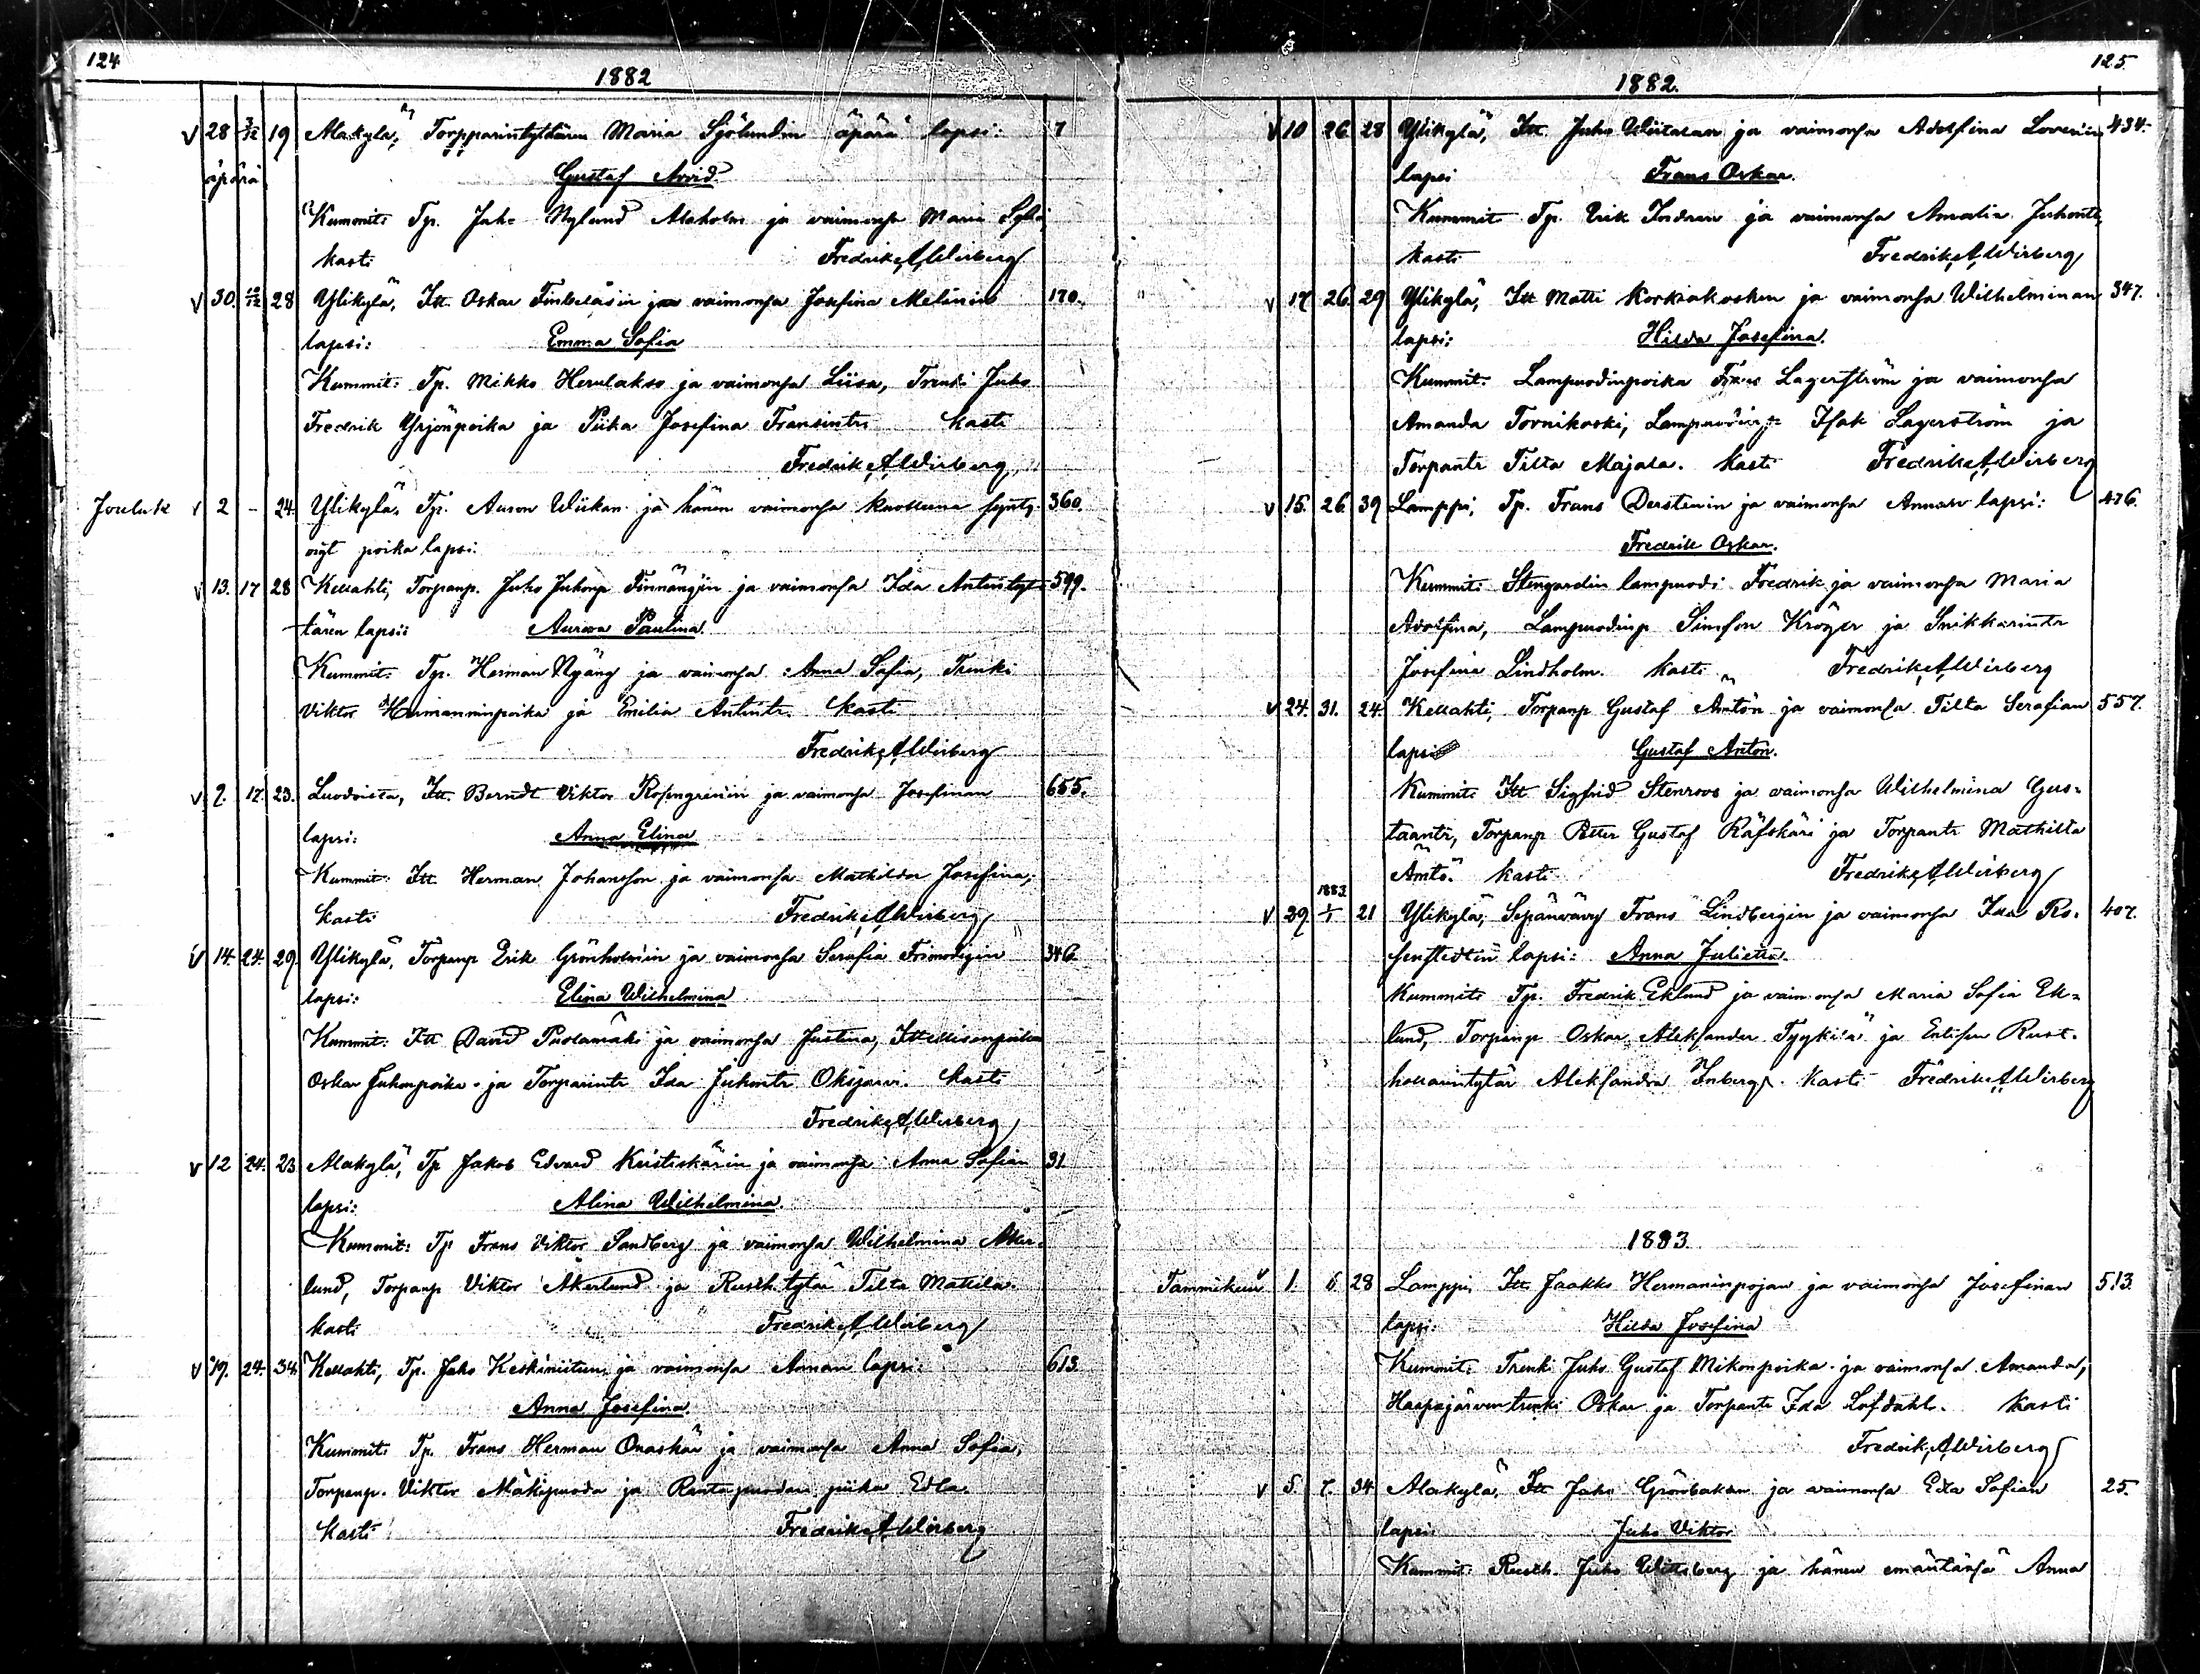 124
1882
v 28 3/12 19 Alakylä, Torpparintyttären Maria Sjölundin äpärä lapsi: 7
äpärä Gustaf Arvid.
Kummit: Tp. Juho Nylund Alaholm ja vaimonsa Maria
kasti Fredrik A Wirberg
v 30. 10/12 28 Ylikylä, Itt. Oskar ja vaimonsa Josefina Melinin 170.
lapsi: Emma Sofia
Kummit: Tp. Mikko Herralakso ja vaimonsa Liisa, Trenki Juho
Fredrik Yrjönpoika ja Piika Josefina Fransintr. kasti
Fredrik A Wirberg
Jouluk v 2 - 24. Ylikylä, Tp. Aaron Wiikan ja hänen vaimonsa kuolleena synty- 360.
nyt poika lapsi.
v 13. 17 28 Kellahti, Torpanp. Juho Juhonp Finnängin ja vaimonsa Ida Antintyt- 599.
tären lapsi: Aurora Paulina.
Kummit: Tp. Herman Nyäng ja vaimonsa Anna Sofia, Trenki
Viktor Hermanninpoika ja Emilia Antintr. kasti
Fredrik A Wirberg
v 7. 17. 23. Luodoista, Itt. Berndt Viktor Rosengrenin ja vaimonsa Josefinan 655.
lapsi: Anna Elina
Kummit: Itt. Herman Johansson ja vaimonsa Mathilda Josefina,
kasti Fredrik A Wirberg
v 14. 24. 29. Ylikylä, Torpanp Erik Grönholmin ja vaimonsa Serafia Frimodigin 346
lapsi: Elina Wilhelmina
Kummit: Itt David Puolamäki ja vaimonsa Justina, Ittellisenpoika
Oskar Juhonpoika ja Torparintr Ida Juhontr Oksjärvi. kasti
Fredrik A Wirberg
v 12 24. 23 Alakylä, Tp Jakob Edvard Keistiskärin ja vaimonsa Anna Sofian 31
lapsi: Alina Wilhelmina.
Kummit: Tp Frans Viktor Sandberg ja vaimonsa Wilhelmina Aker-
lund, Torpanp Viktor Akerlund ja Rusth. tytär Tilta Mattila.
kasti Fredrik A Wirberg
v 19. 24. 34. Kellahti, Tp. Juho Keskiniitun ja vaimonsa Annan lapsi: 613.
Anna Josefina.
Kummit: Tp. Frans Herman Onaskäri ja vaimonsa Anna Sofia,
Torpanp. Viktor Mäkipuoda ja Rantapuodan piika Edla.
kasti Fredrik A Wirberg
125.
1882.
v 10 26. 28 Ylikylä, Itt. Juho Wiitasan ja vaimonsa Adolfina Lovenin 434.
lapsi Frans Oskar.
Kummit Tp. Erik ja vaimonsa Amalia Juhontr,
kasti Fredrik A Wirberg
v 17. 26. 29 Ylikylä, Itt Matti Korkiakosken ja vaimonsa Wilhelminan 347.
lapsi: Hilda Josefina.
Kummit: Lampuodinpoika Frans Lagerström ja vaimonsa
Amanda Tornikoski, Lampuodinp Isak Lagerström ja
Torpantr Tilta Majala. kasti Fredrik A Wirberg
v 15. 26. 39 Lamppi, Tp. Frans Derstenin ja vaimonsa Annan lapsi: 476.
Fredrik Oskar.
Kummit: Stengardin lampuodi Fredrik ja vaimonsa Maria
Adolfina, Lampuodinp Simson Kröger ja Snikkarintr
Josefina Lindholm. kasti Fredrik A Wirberg
v 24. 31. 24. Kellahti, Torpanp Gustaf Ämtön ja vaimonsa Tilta Serafian 557.
lapsi Gustaf Anton.
Kummit: Itt Sigfrid Stenroos ja vaimonsa Wilhelmina Gus-
taantr, Torpanp Petter Gustaf Räfskäri ja Torpantr Mathilta
Ämtö. kasti Fredrik A Wirberg
v 29 1883 1/1 21 Ylikylä, Sepänvävy Frans Lindbergin ja vaimonsa Ida Ro- 407.
senstedtin lapsi: Anna Julietta.
Kummit: Tp. Fredrik Eklund ja vaimonsa Maria Sofia Ek-
lund, Torpanp Oskar Aleksander Tyykilä ja Entisen Rust-
hollarintytär Aleksandra Inberg. kasti Fredrik A Wirberg
1883.
Tammikuu v 1. 6. 28 Lamppi, Itt. Jaakko Hermaninpojan ja vaimonsa Josefinan 513.
lapsi: Hilda Josefina
Kummit: Trenki Juho Gustaf Mikonpoika ja vaimonsa Amanda,
Haapajärven trenki Oskar ja Torpantr Ida Löfdahl. kasti
Fredrik A Wirberg
v 5. 7. 34 Alakylä, Itt Juho Grönbakan ja vaimonsa Edla Sofian 25.
lapsi Juho Viktor
Kummit: Rusth. Juho Wittsberg ja hänen emäntänsä Anna